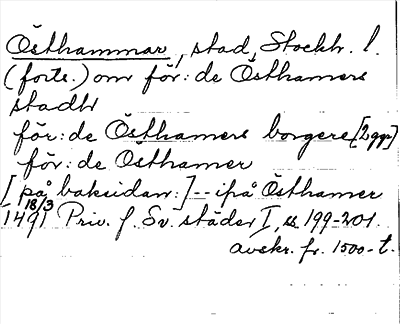 Östhammar, stad, Stockh. l.
(forts.) om för: de Östhamers
stadh
för: de Östhamers borgere [2ggr]
för: de Östhamer
[på baksidan:] -- ipå Östhamer
18/3
1491 Priv. f. Sv. städer I, ss. 199-201.
avskr. fr. 1500-t.